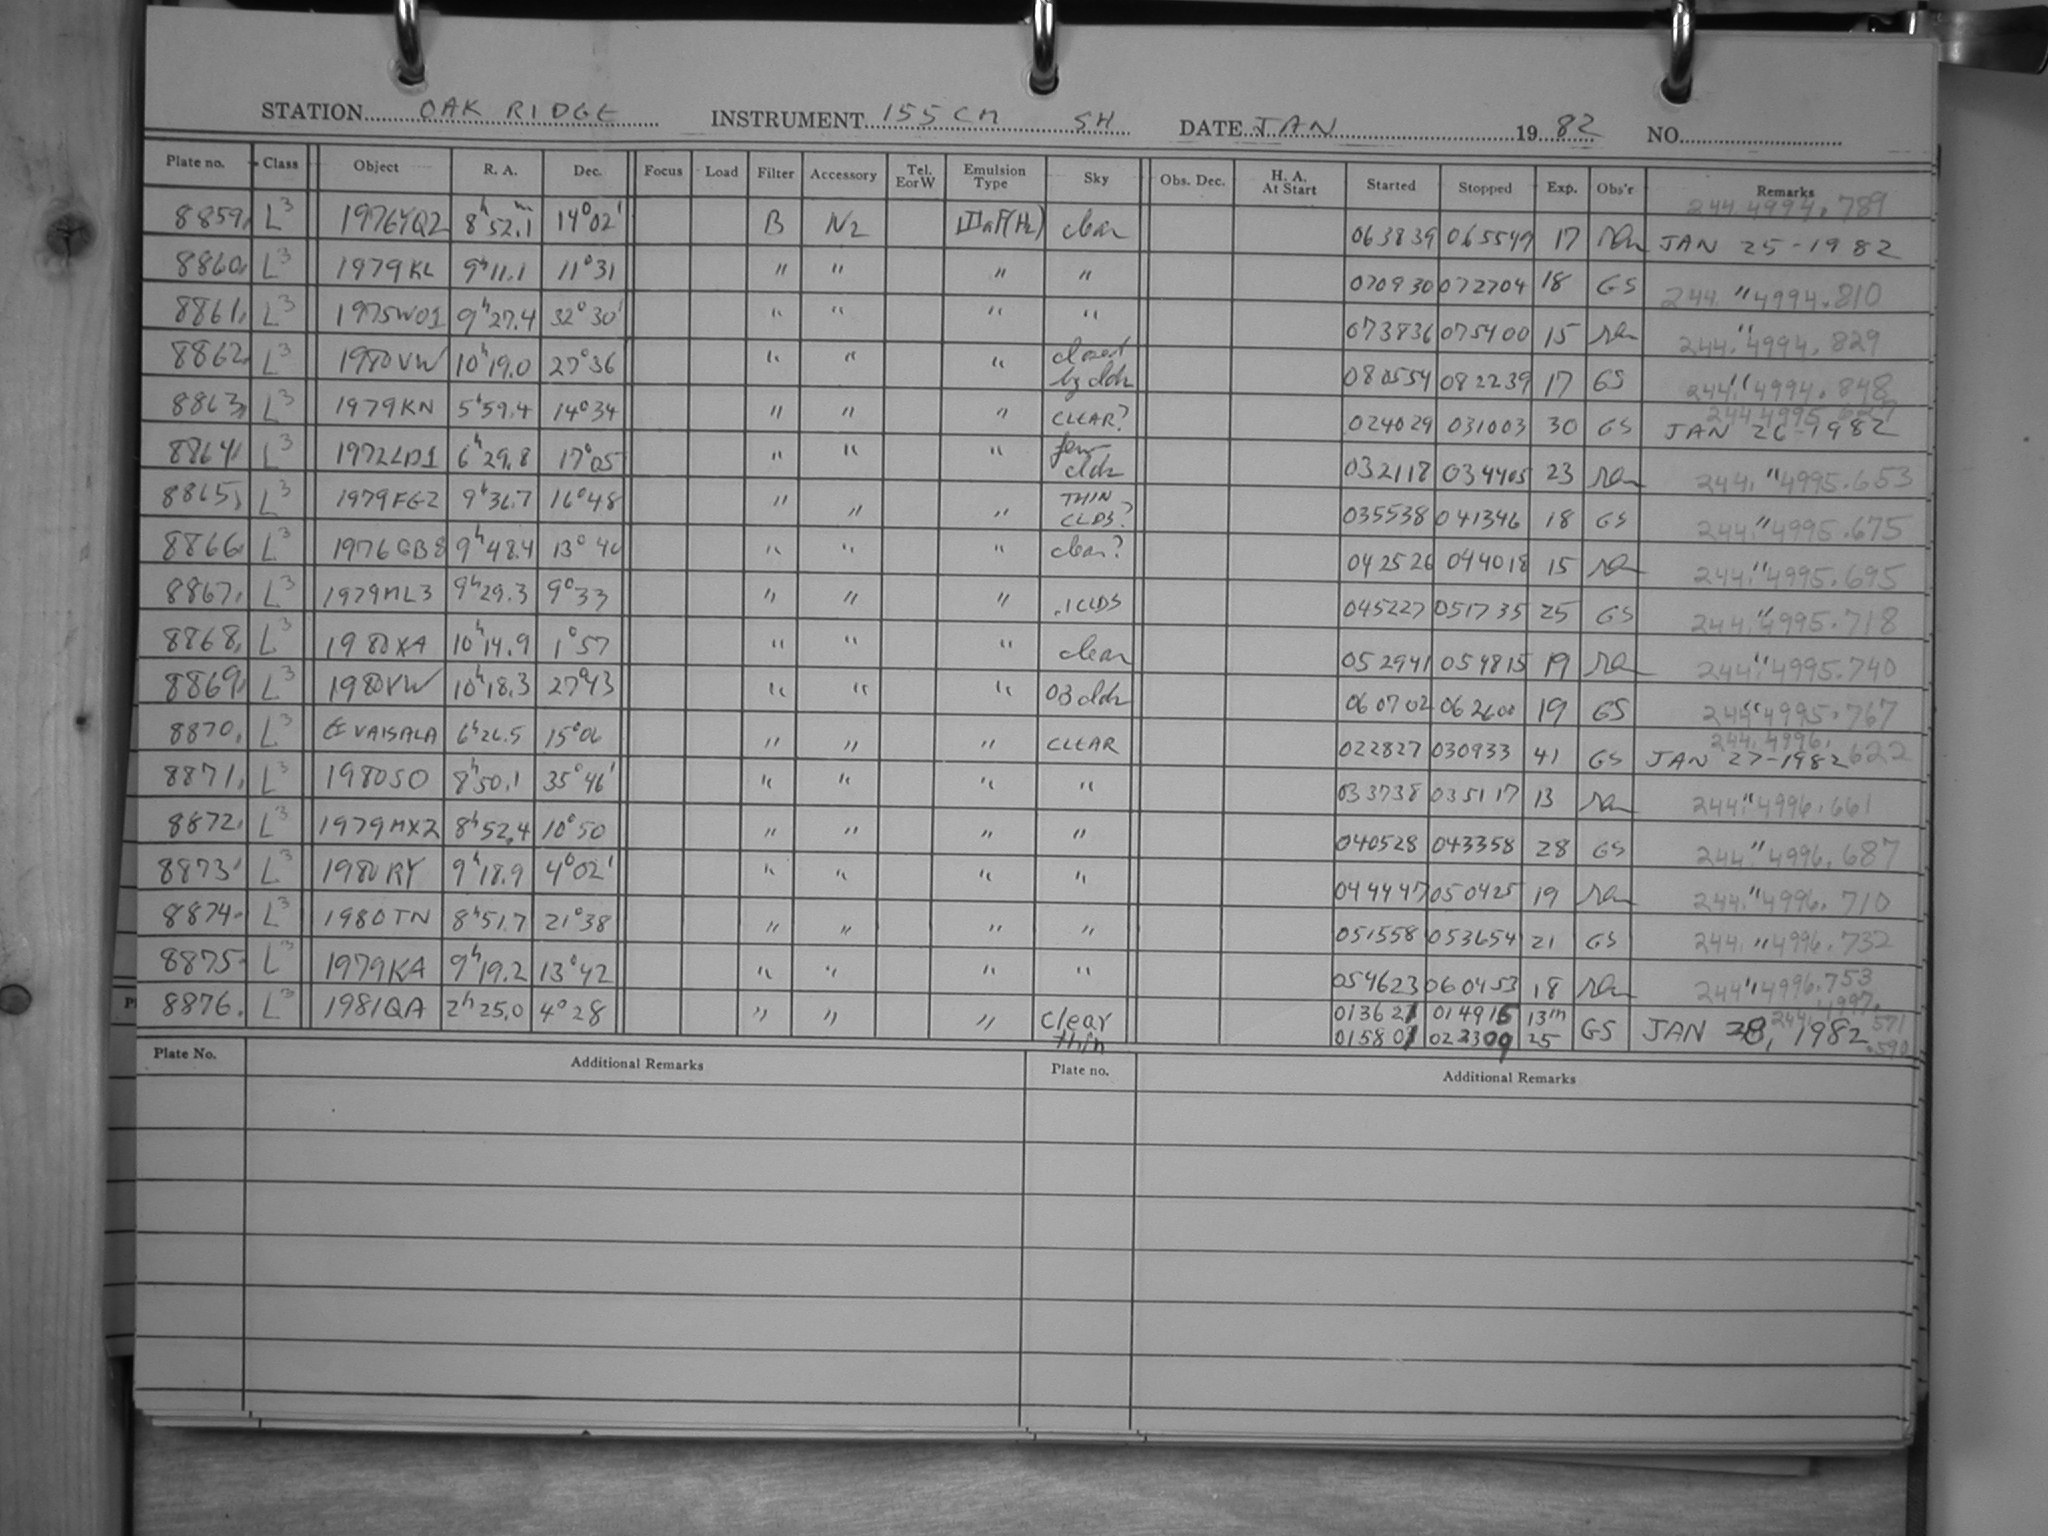 STATION OAK RIDGE INSTRUMENT 155 CM SH DATE JAN 19 82 NO.
Plate no. Class Object R. A. Dec. Focus Load Filter Accessory Tel. E or W Emulsion Type Sky Obs. Dec. H. A. At Start Started Stopped Exp. Obs'r Remarks
244 4994.789
8859 L3 1976YQ2 8h52.1m 14°02' B N2 IIIaF(H2) clear 063839 065549 17 JAN 25-1982
8860 L3 1979KL 9h11.1 11°31 " " " " 070930 072704 18 GS 244 " 4994.810
8861 L3 1975WO1 9h27.4 32°30' " " " " 073836 075400 15 244 " 4994.829
8862 L3 1980VW 10h19.0 27°36 " " " closed by clds 080554 082239 17 GS 244 " 4994.848
8863 L3 1979KN 5h59.4 14°34 " " " CLEAR? 024029 031003 30 GS 244 4995. JAN 26-1982
8864 L3 1972LD1 6h29.8 17°05 " " " few clds 032118 034405 23 244 " 4995.653
8865 L3 1979FG2 9h36.7 16°48 " " " THIN CLDS? 035538 041346 18 GS 244 " 4995.675
8866 L3 1976GB8 9h48.4 13°40 " " " clear? 042526 044018 15 244 " 4995.695
8867 L3 1979ML3 9h29.3 9°33 " " " .1CLDS 045227 051735 25 GS 244 " 4995.718
8868 L3 1980XA 10h14.9 1°57 " " " clear 052941 054815 19 244 " 4995.740
8869 L3 1980VW 10h18.3 27°43 " " " 03 clds 060702 062600 19 GS 244 " 4995.767
8870 L3 VAISALA 6h26.5 15°06 " " " CLEAR 022827 030933 41 GS 244 4996.622 JAN 27-1982
8871 L3 1980SO 8h50.1 35°46' " " " " 033738 035117 13 244 " 4996.661
8872 L3 1979MX2 8h52.4 10°50 " " " " 040528 043358 28 GS 244 " 4996.687
8873 L3 1980RY 9h18.9 4°02' " " " " 044447 050425 19 244 " 4996.710
8874 L3 1980TN 8h51.7 21°38 " " " " 051558 053654 21 GS 244 " 4996.732
8875 L3 1979KA 9h19.2 13°42 " " " " 054623 060453 18 244 " 4996.753
8876 L3 1981QA 2h25.0 4°28 " " " clear thin 013621 014915 13m GS JAN 28, 1982 244 4997.571
015801 022309 25 .590
Plate No. Additional Remarks Plate no. Additional Remarks